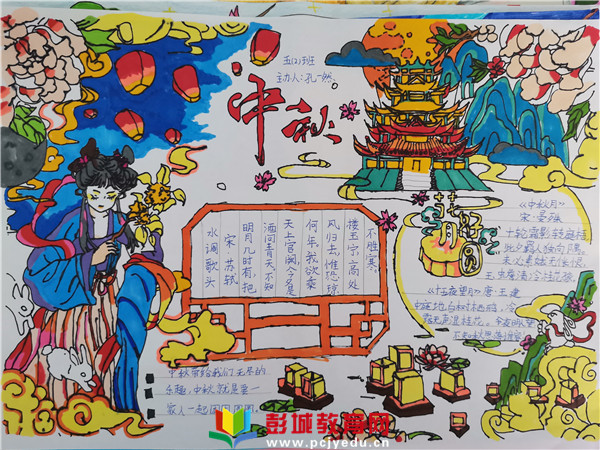 五(2)班
主办人:孔一然
中秋
水调歌头
宋 苏轼
明月几时有,把
酒问青天,不知
天上宫阙,今夕是
何年,我欲乘
风归去,惟恐琼
楼玉宇,高处
不胜寒,
《中秋月》
宋·晏殊
十轮霜影转庭梧
此夕羁人独向隅。
未必素娥无怅恨
玉蟾清冷桂花孤
《十五夜望月》唐·王建
中庭地白树栖鸦,冷
露无声湿桂花。今夜月明
不知秋思落谁家
中秋带给我们无尽的
乐趣,中秋就是要一
家人一起团团圆圆。
彭城教育网
www.pcjyedu.cn